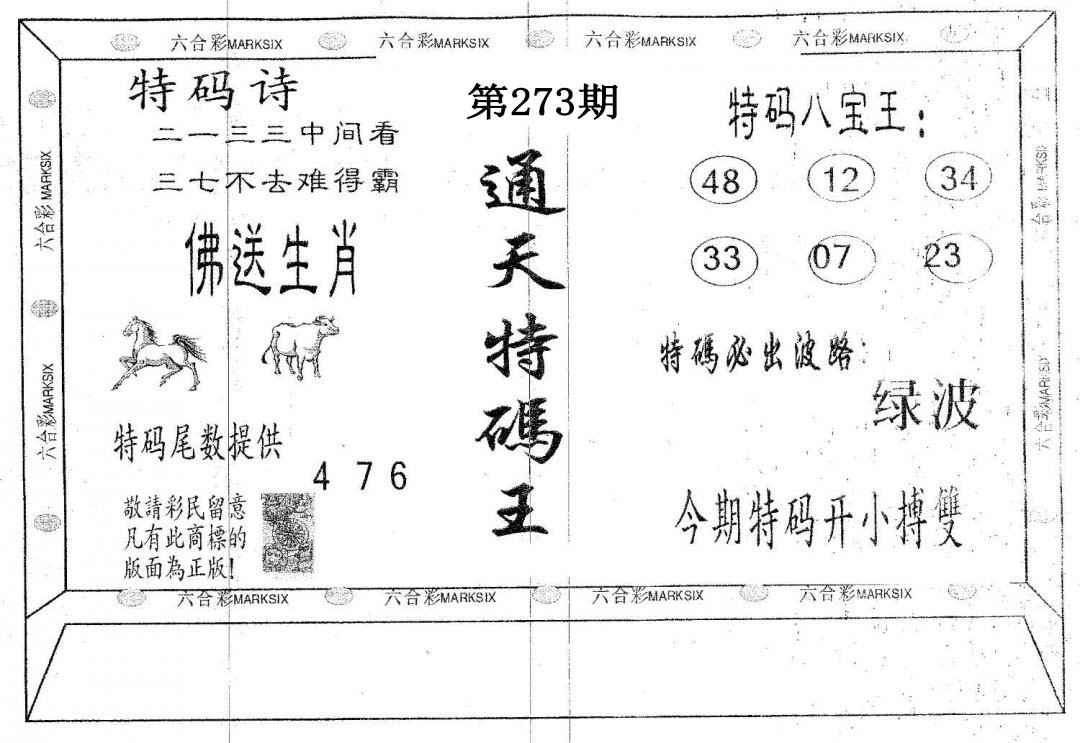 六合彩MARKSIX 六合彩MARKSIX 六合彩MARKSIX 六合彩MARKSIX
特码诗
二一三三中间看
三七不去难得霸
佛送生肖
特码尾数提供
4 7 6
敬請彩民留意
凡有此商標的
版面為正版!
第273期
通天特碼王
特码八宝王:
48 12 34
33 07 23
特碼必出波路:
绿波
今期特码开小搏雙
六合彩MARKSIX
六合彩MARKSIX
六合彩MARKSIX
六合彩MARKSIX
六合彩MARKSIX 六合彩MARKSIX 六合彩MARKSIX 六合彩MARKSIX